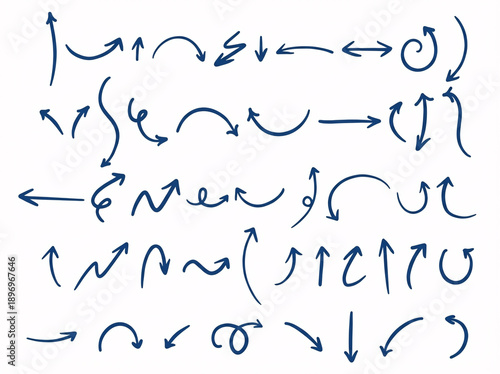 Adobe Stock | #1896967646